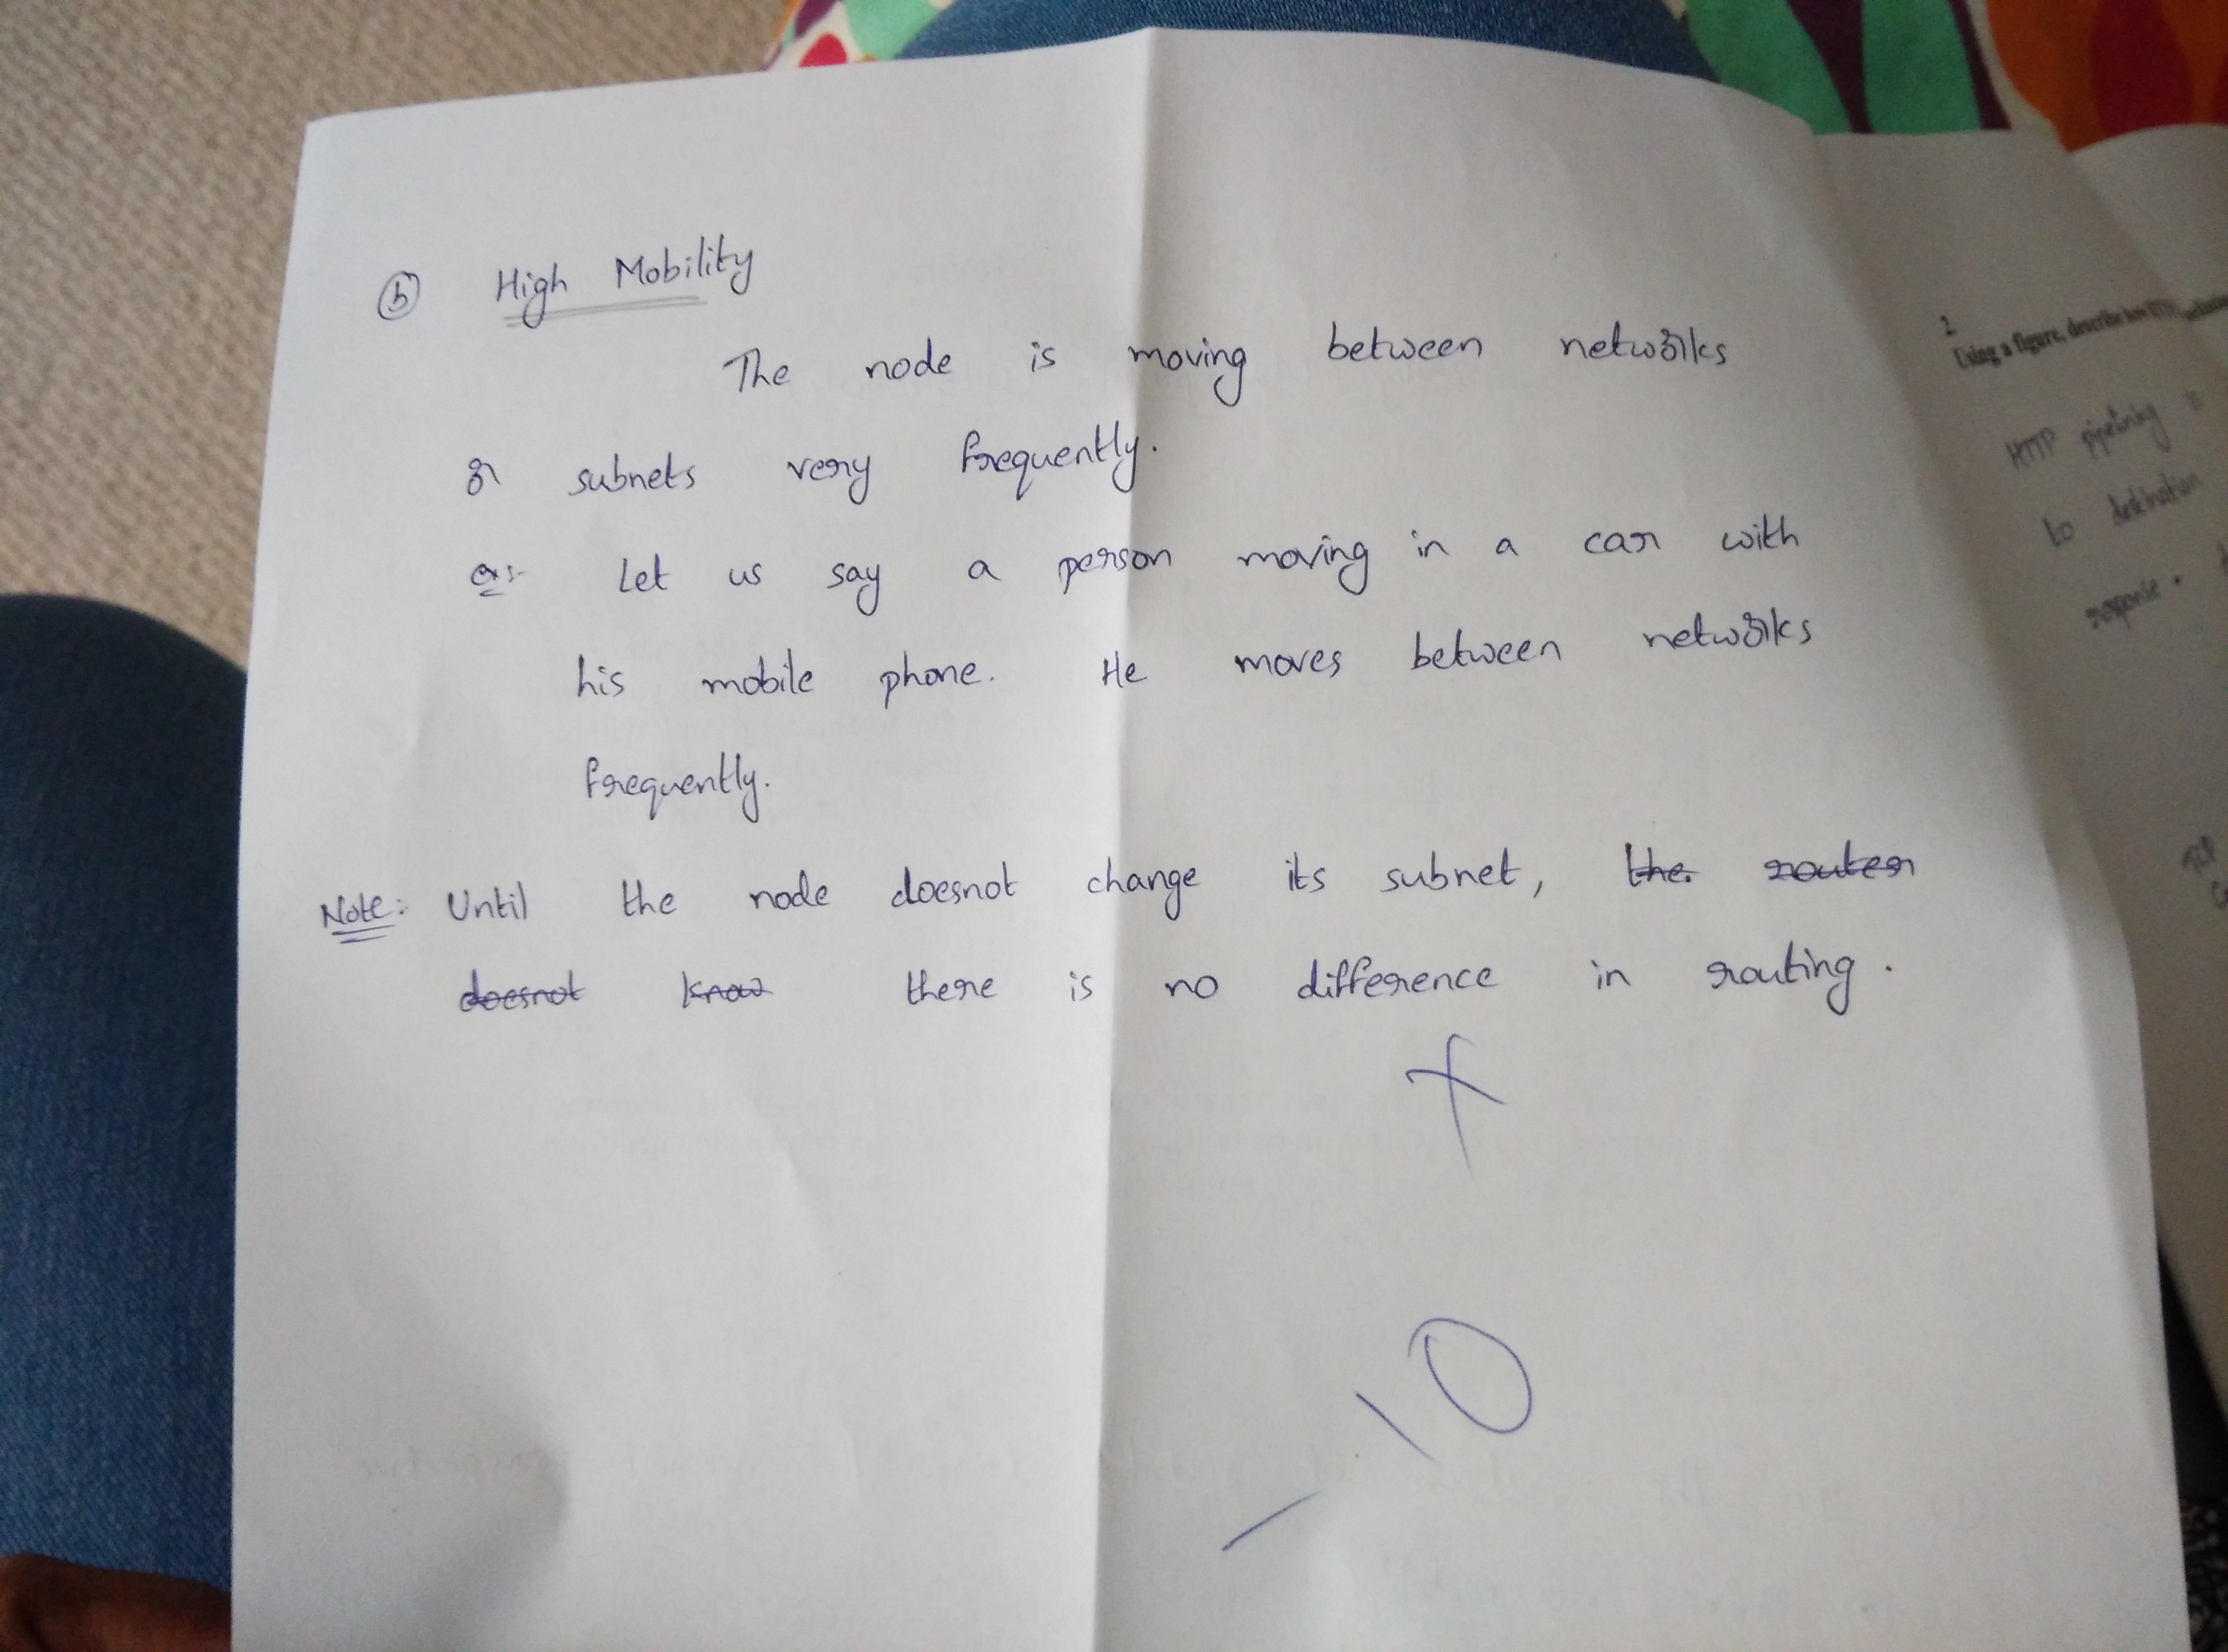 b High Mobility
The node is moving between networks
or subnets very frequently.
ex:- Let us say a person moving in a car with
his mobile phone. He moves between networks
frequently.
Note: Until the node doesnot change its subnet, the router
doesnot know there is no difference in routing.
X
-10
2
Using a figure, describe how
HTTP pipelining is
to destination
response.